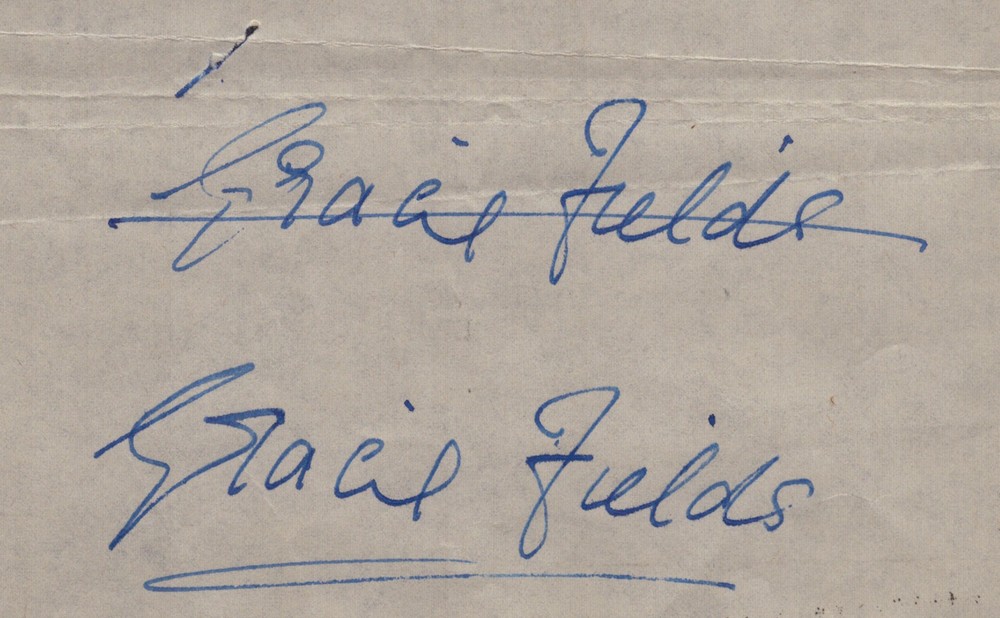 Gracie Fields
Gracie Fields